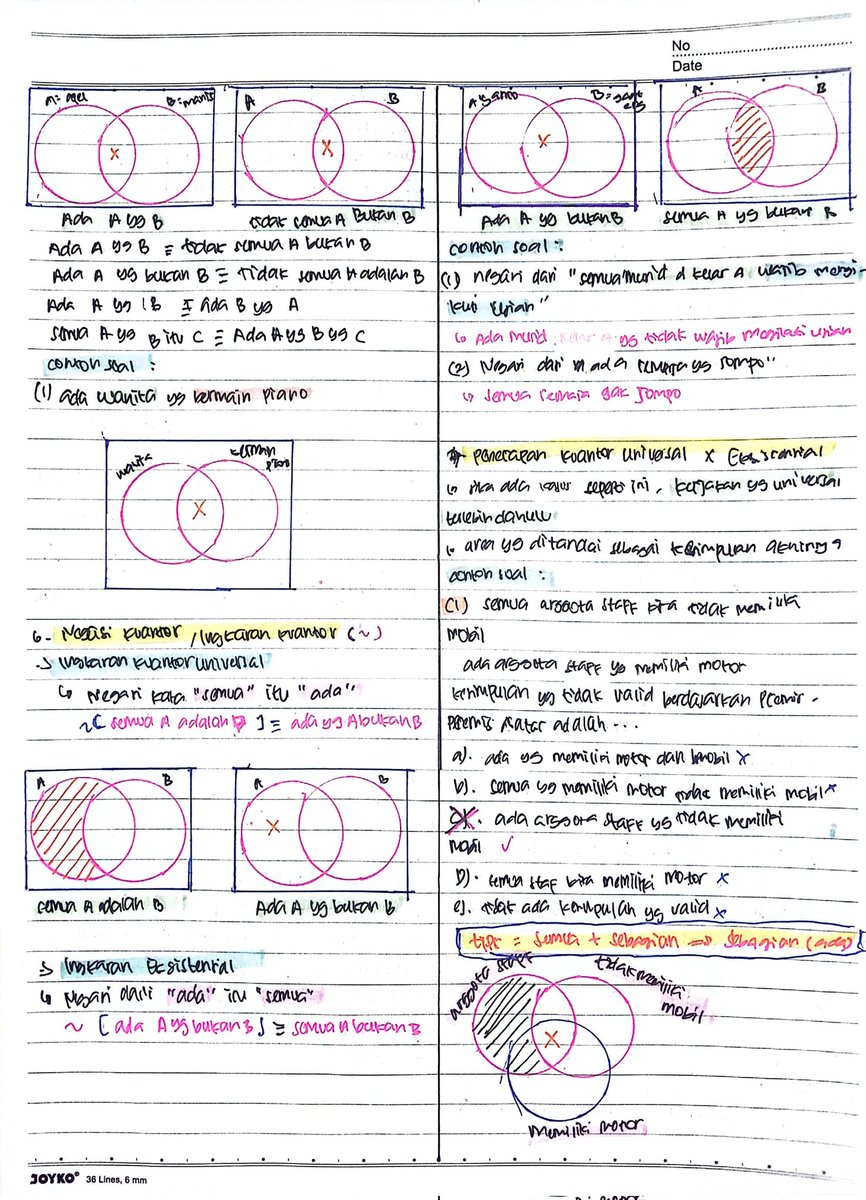 No
Date
B = manis
A
B
Ada A yg B
tidak semua A Bukan B
Ada A yg B ≡ tidak semua A bukan B
Ada A yg bukan B ≡ Tidak semua A adalah B
Ada A yg B ≡ ada B yg A
semua A yg B itu C ≡ Ada A yg B yg C
contoh soal :
(1) ada wanita yg bermain piano
wanita
bermain piano
6. Negasi kuantor / Ingkaran kuantor (~)
-> Ingkaran kuantor universal
↳ Negasi kata "semua" itu "ada"
~[ semua A adalah B ] ≡ ada yg A bukan B
A
B
A
B
semua A adalah B
Ada A yg bukan B
-> Ingkaran Eksistensial
↳ Negasi dari "ada" itu "semua"
~ [ ada A yg bukan B ] ≡ semua A bukan B
A
B
Ada A yg bukan B
semua A yg bukan B
contoh soal :
(1) negasi dari "semua murid d kelas A wajib mengi-
kuti ujian"
↳ Ada murid kelas A yg tidak wajib mengikuti ujian
(2) Negasi dari " ada remaja yg jompo"
↳ semua remaja gak jompo
Penerapan kuantor universal x Eksistensial
↳ jika ada kasus seperti ini, kerjakan yg universal
terlebih dahulu
↳ area yg ditandai sebagai kesimpulan akhirnya
contoh soal :
(1) semua anggota staff kita tidak memiliki
mobil
ada anggota staff yg memiliki motor
kesimpulan yg tidak valid berdasarkan premis-
premis diatas adalah ...
a). ada yg memiliki motor dan mobil x
b). semua yg memiliki motor tidak memiliki mobil x
c). ada anggota staff yg tidak memiliki
mobil ✓
D). semua staf kita memiliki motor x
e). tidak ada kesimpulan yg valid x
tips = semua + sebagian => sebagian (ada)
anggota staff
tidak memiliki
mobil
Memiliki motor
JOYKO 36 Lines, 6 mm